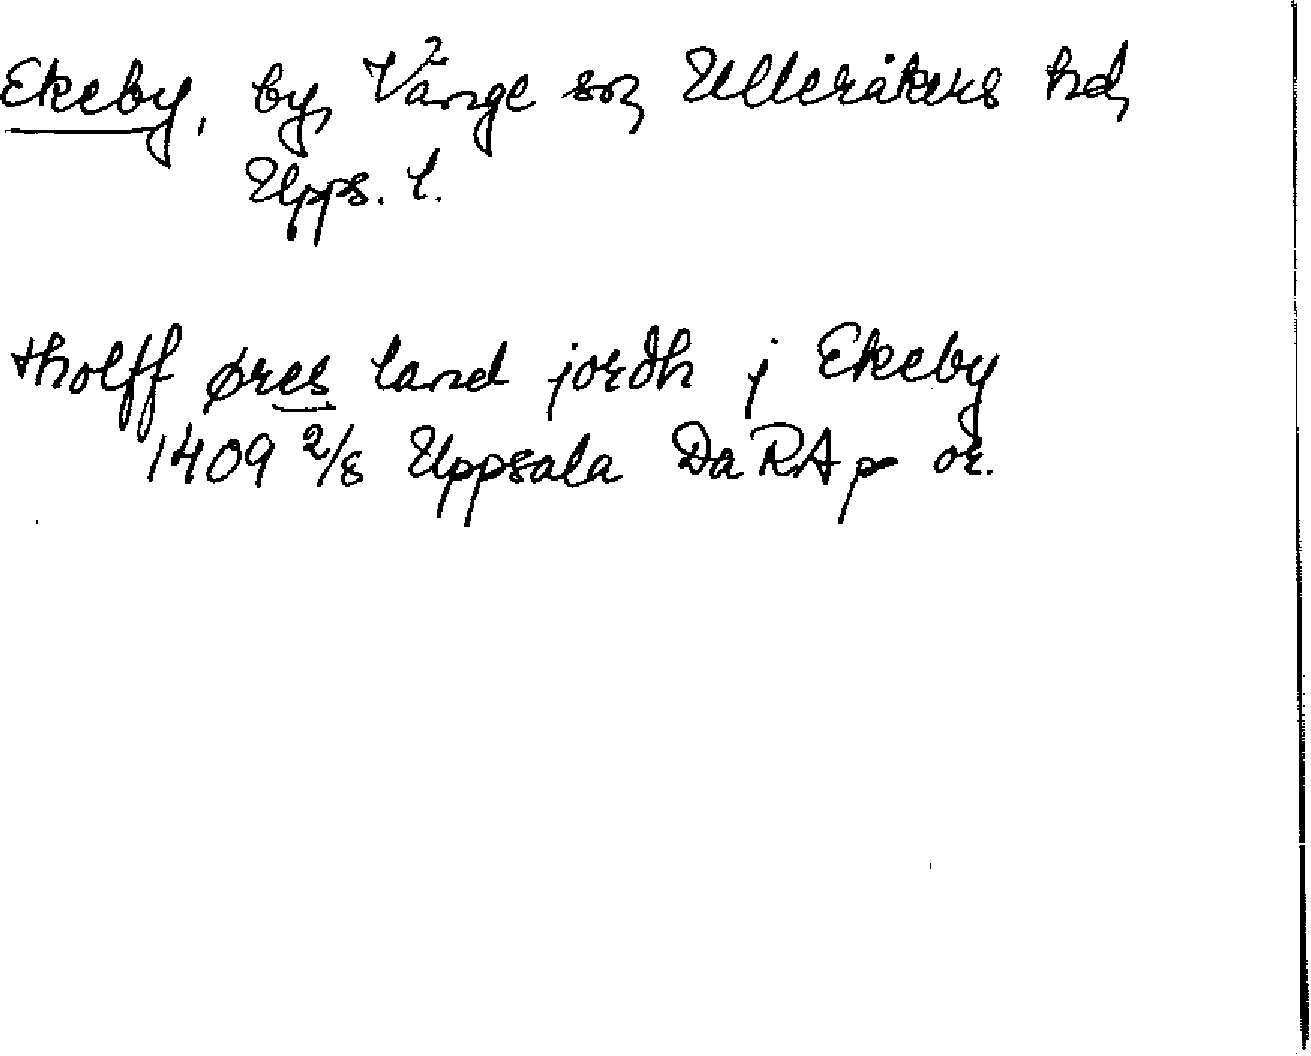 Ekeby, by, Vänge sn, Ulleråkers hd,
Upps. l.
tholff øres land jordh j Ekeby
1409 2/8 Uppsala DaRAp or.